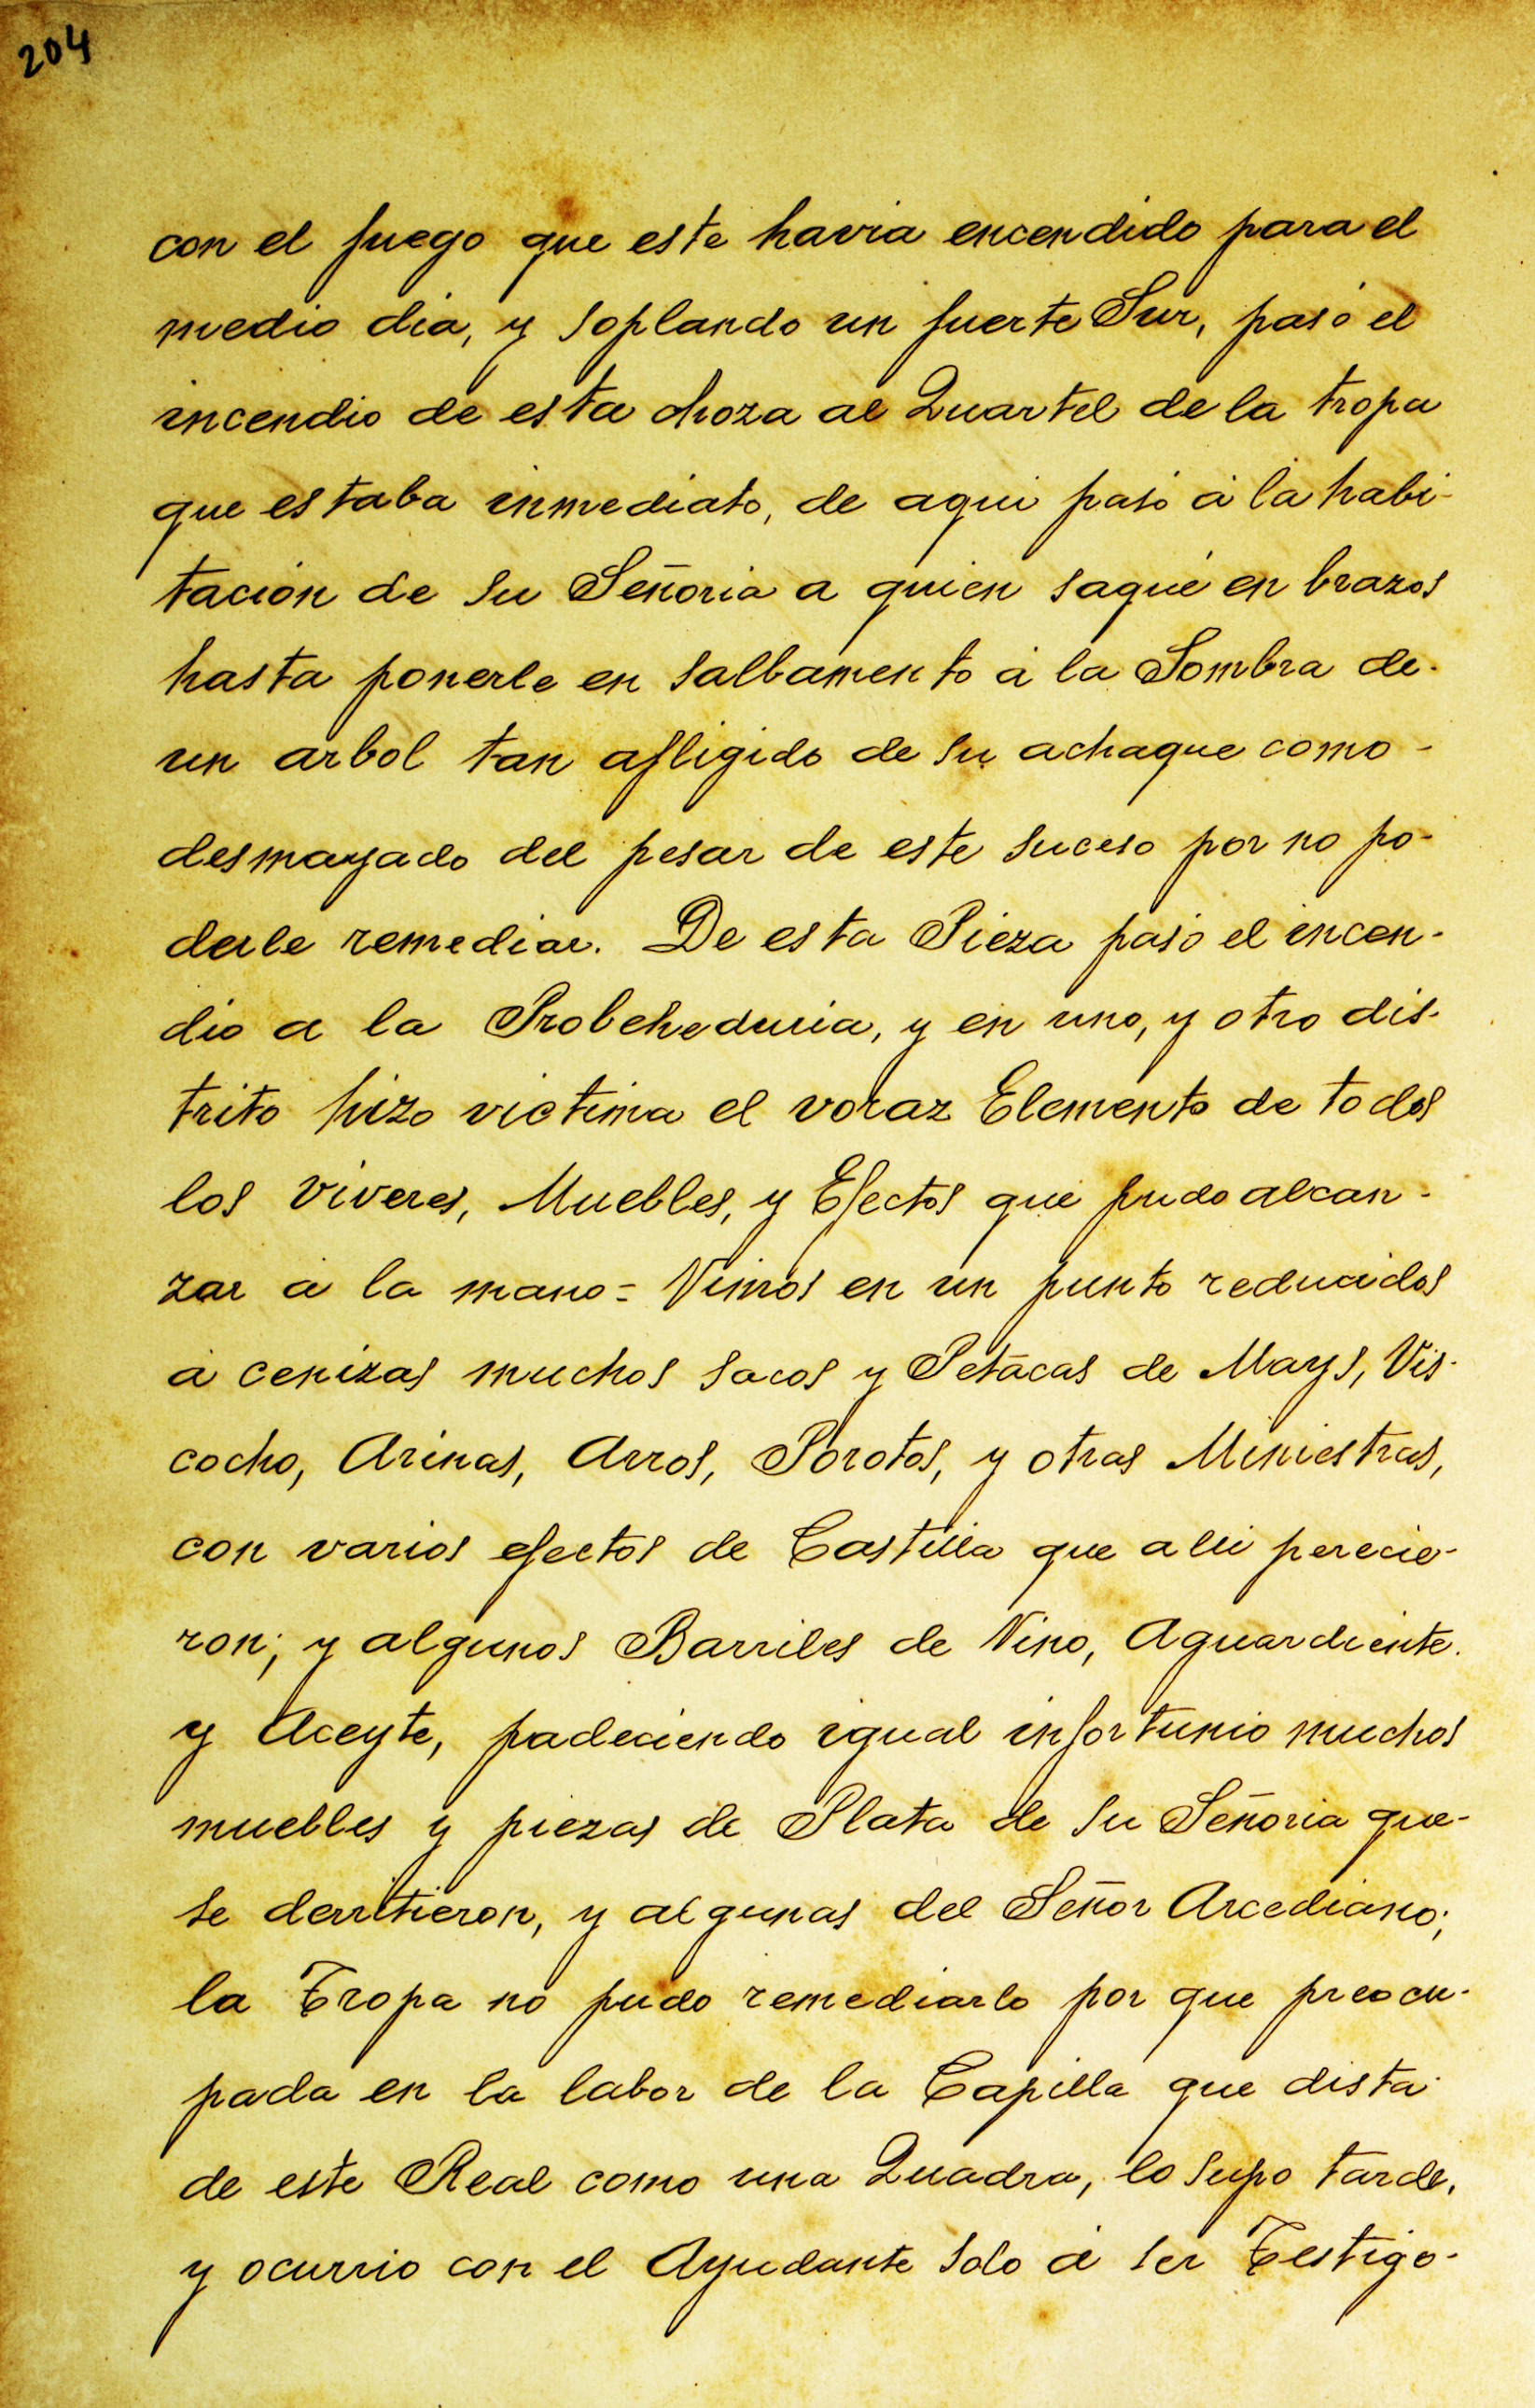 204
con el fuego que este havia encendido para el
medio dia, y soplando un fuerte Sur, pasó el
incendio de esta choza al Quartel de la tropa
que estaba inmediato, de aqui pasó á la habi-
tación de su Señoria a quien saqué en brazos
hasta ponerle en salbamento á la Sombra de-
un arbol tan afligido de su achaque como-
desmayado del pesar de este suceso por no po-
derle remediar. De esta Pieza pasó el incen-
dio a la Probeheduria, y en uno, y otro dis-
trito hizo victima el voraz Elemento de todos
los viveres, Muebles, y Efectos que pudo alcan-
zar á la mano = Vimos en un punto reducidos
á cenizas muchos sacos y Petacas de Mays, Vis-
cocho, Arinas, Arros, Porotos, y otras Miniestras,
con varios efectos de Castilla que alli perecie-
ron; y algunos Barriles de Vino, Aguardiente.
y Aceyte, padeciendo igual infortunio muchos
muebles y piezas de Plata de su Señoria que-
se derritieron, y algunas del Señor Arcediano;
la Tropa no pudo remediarlo por que preocu-
pada en la labor de la Capilla que dista-
de este Real como una Quadra, lo supo tarde,
y ocurrio con el Ayudante solo á ser Testigo-